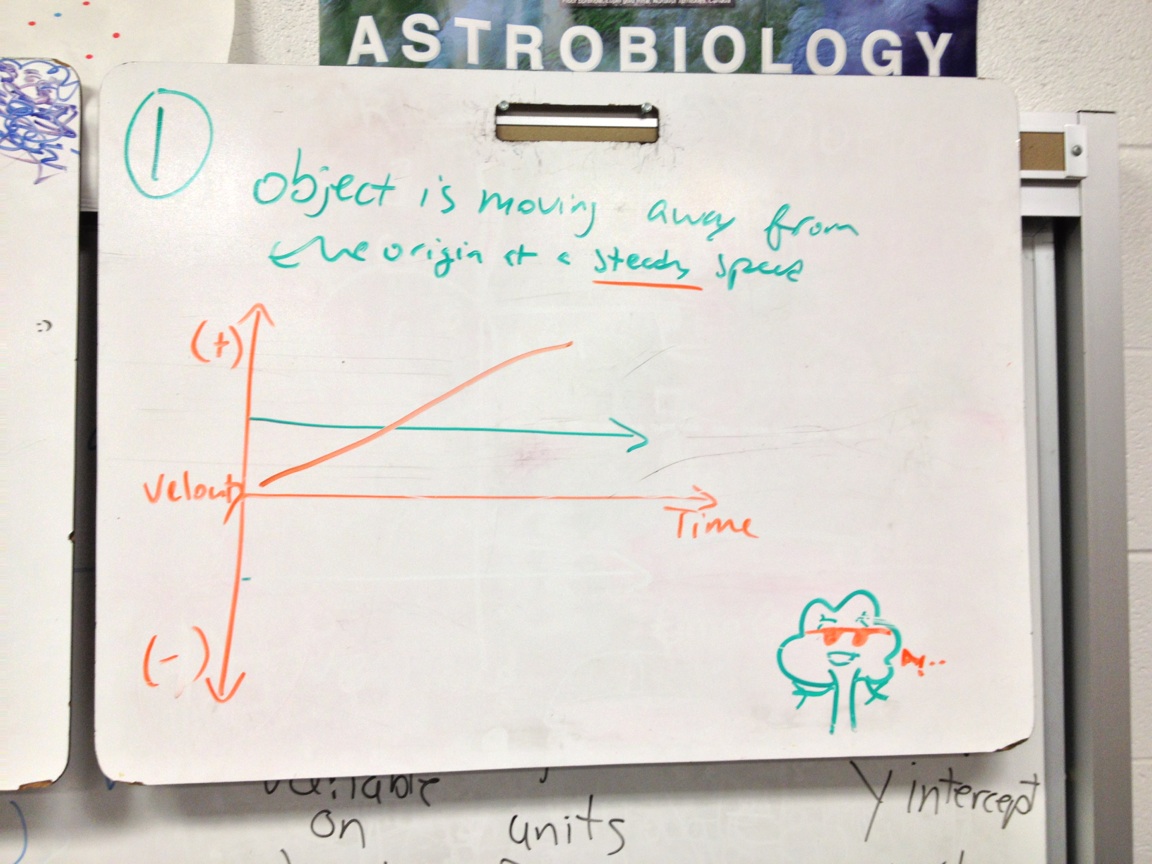 ASTROBIOLOGY
1
object is moving away from
the origin at a steady speed
(+)
Velocity
Time
(-)
variable
on
units
y intercept